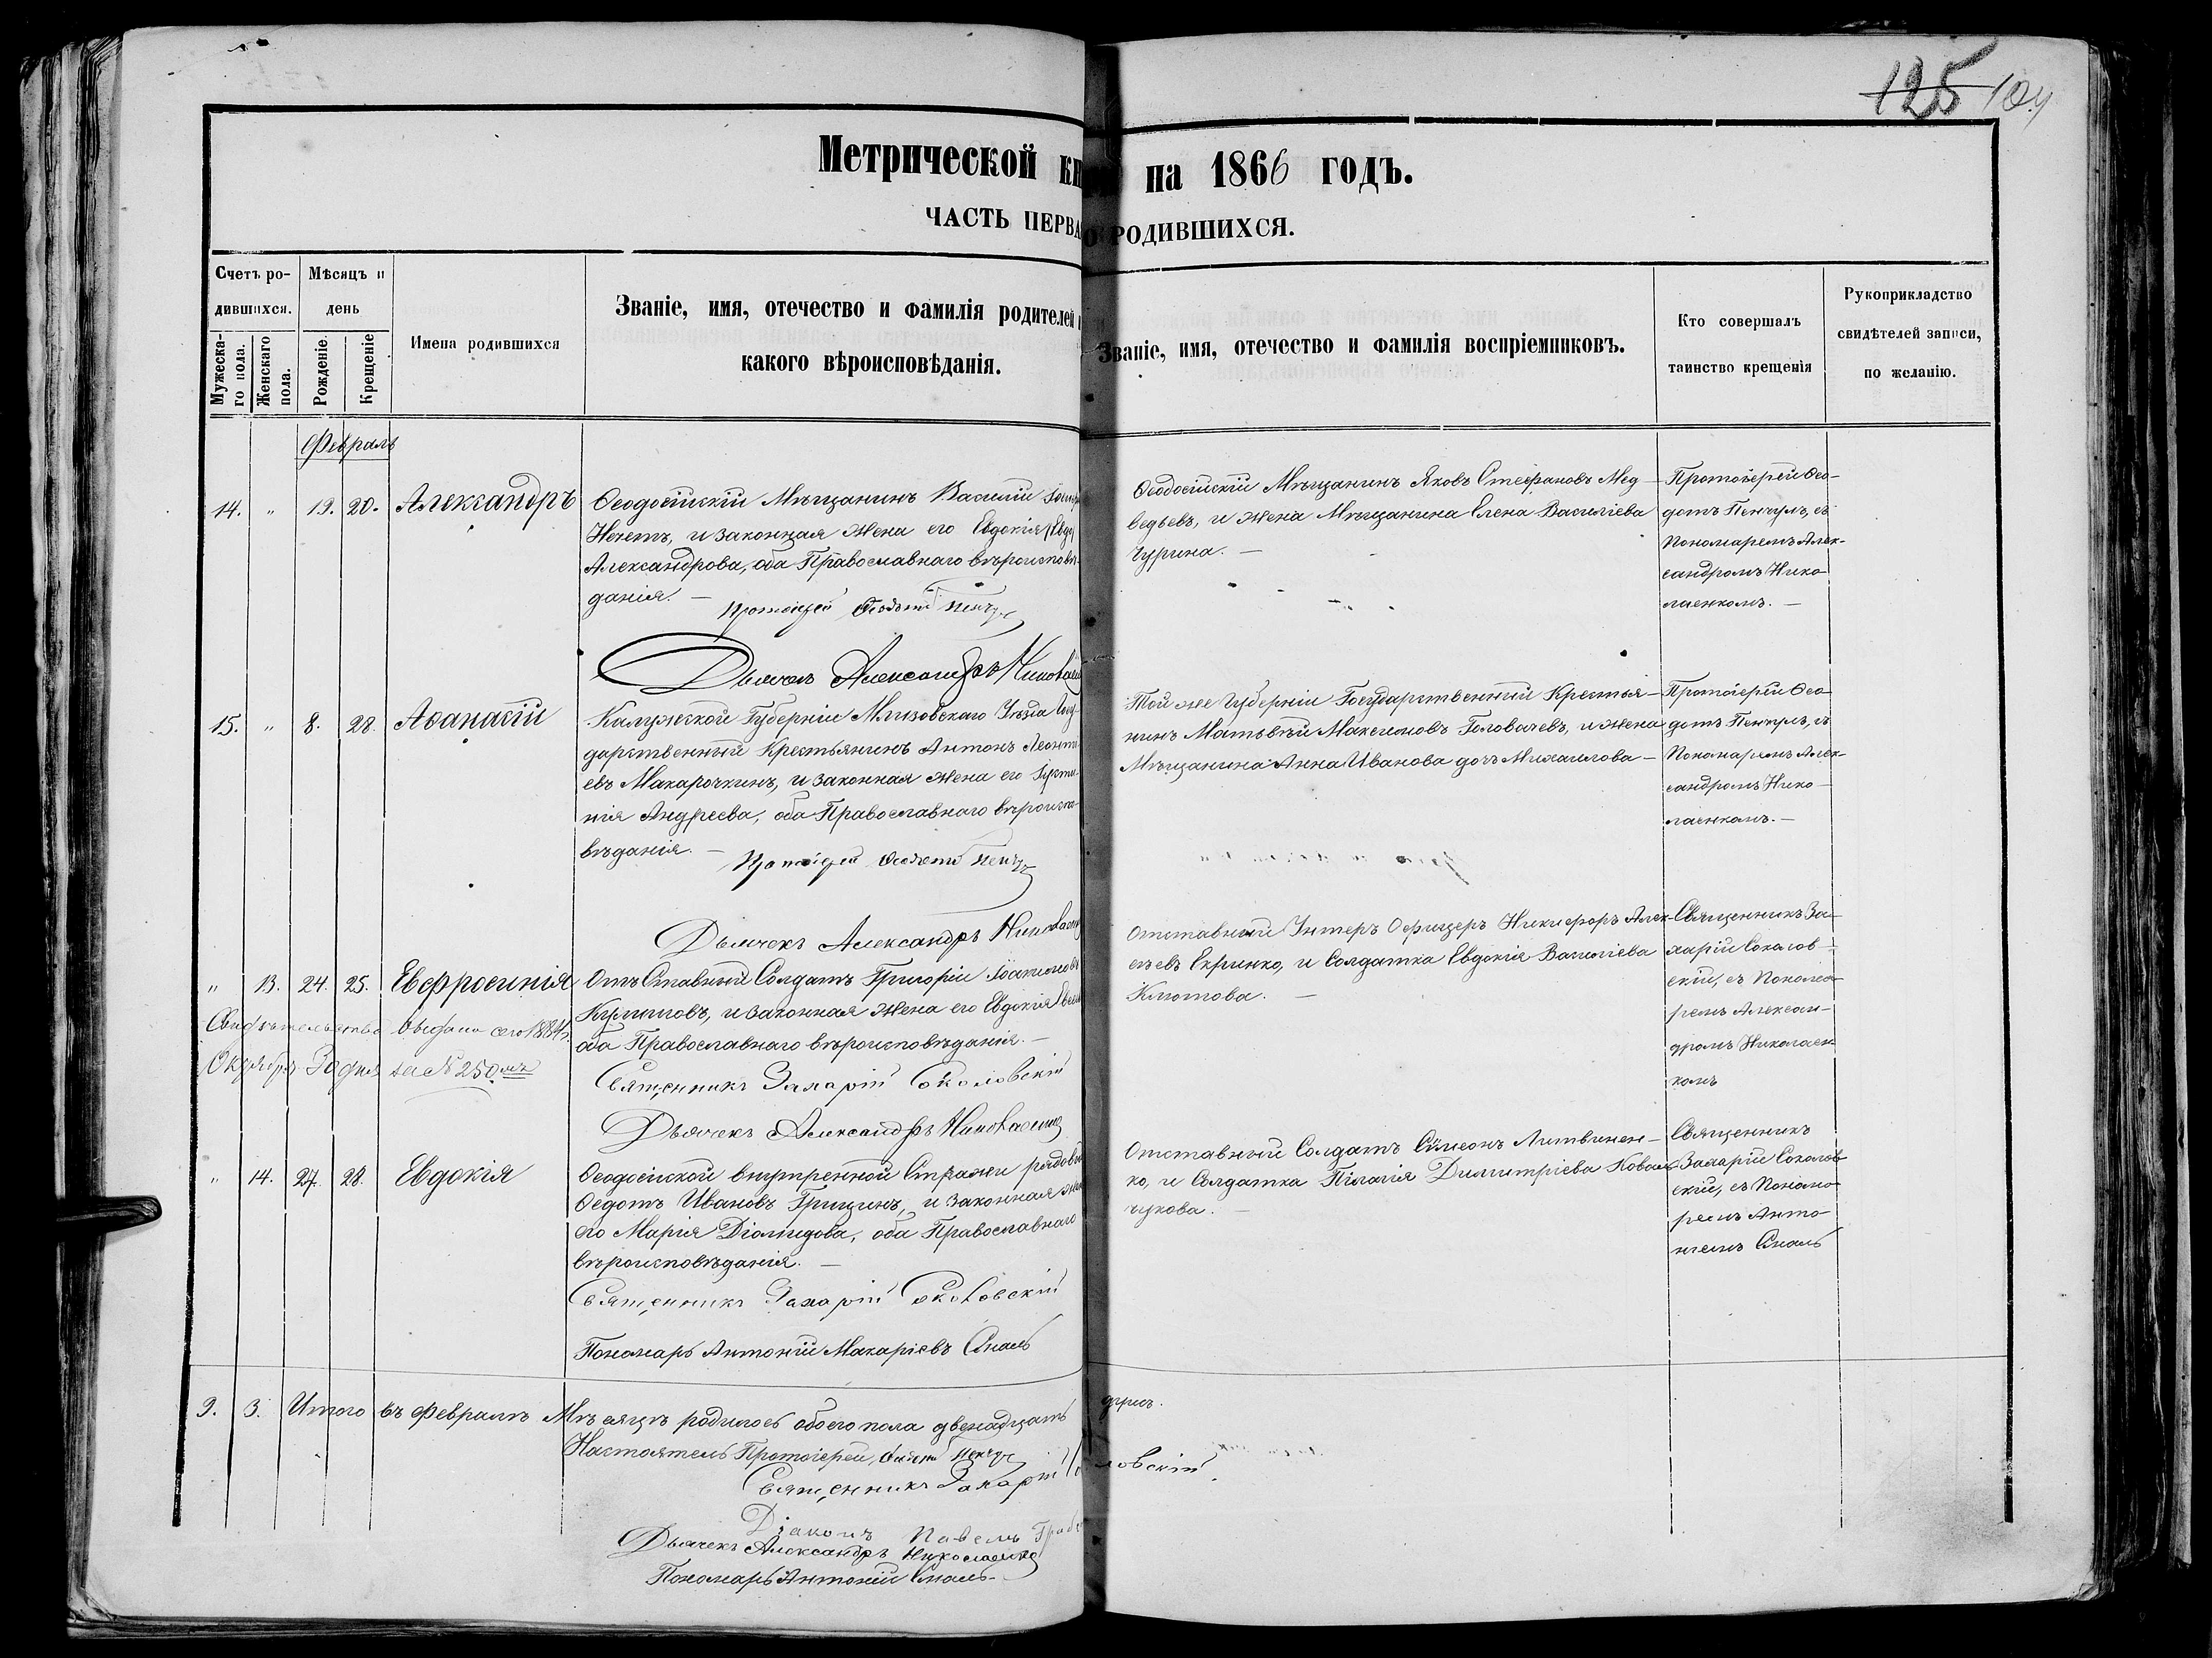 125 104
Метрической кн на 1866 годъ.
ЧАСТЬ ПЕРВА О РОДИВШИХСЯ.
Счетъ родившихся.
Мужескаго пола.
Женскаго пола.
Мѣсяцъ и день
Рожденіе.
Крещеніе
Имена родившихся
Званіе, имя, отечество и фамилія родителей
какого вѣроисповѣданія.
Званіе, имя, отечество и фамилія воспріемниковъ.
Кто совершалъ
таинство крещенія
Рукоприкладство
свидѣтелей записи,
по желанію.
Февраль
14. " 19. 20. Александръ
Ѳеодосійскій Мѣщанинъ Василій
Нечетъ, и законная жена его Евдокія
Александрова, оба Православнаго вѣроисповѣ-
данія. —
Протоіерей Ѳеодотъ Пенчул
Дьячекъ Александръ Никола
Ѳеодосійскій Мѣщанинъ Яковъ Стефановъ Мед-
ведьевъ, и жена Мѣщанина Елена Василіева
Чурина. —
Протоіерей Ѳео-
дотъ Пенчулъ, съ
Пономаремъ Алек-
сандромъ Нико-
лаенкомъ. —
15. " 8. 28. Аѳанасій
Калужской Губерніи Уѣзда Госу-
дарственный Крестьянинъ Антонъ Леонті-
евъ Макарочкинъ, и законная жена его
нія Андреева, оба Православнаго вѣроиспо-
вѣданія. —
Протоіерей Ѳеодотъ Пенчул
Дьячекъ Александръ Николаенко
Той же Губерніи Государственный Крестья-
нинъ Матвѣй Максимовъ Головачевъ, и жена
Мѣщанина Анна Иванова дочь Михаилова —
Протоіерей Ѳео-
дотъ Пенчулъ, съ
Пономаремъ Алек-
сандромъ Нико-
лаенкомъ. —
" 13. 24. 25. Евфросинія
Отъ Ставный Солдатъ Григорій
Куликовъ, и законная жена его Евдокія
оба Православнаго вѣроисповѣданія. —
Священникъ Захарій Соколовскій
Дьячекъ Александръ Николаенко
Свидѣтельство выдано сего 1884 г.
Октября 30 дня за № 250мъ
Отставный Унтеръ Офицеръ Никифоръ Алек-
сѣевъ Скринко, и Солдатка Евдокія Василіева
Клютова. —
Священникъ За-
харій Соколов-
скій, съ Понома-
ремъ Алексан-
дромъ Николаен-
комъ
" 14. 27. 28. Евдокія
Ѳеодосійской внутренной Стражи рядовый
Ѳедотъ Ивановъ Грицинъ, и законная жена
его Марія Діомидова, оба Православнаго
вѣроисповѣданія. —
Священникъ Захарій Соколовскій
Пономарь Антоній Макаріевъ Скаль
Отставный Солдатъ Сѵмеонъ Литвинен-
ко, и Солдатка Пілагія Димитріева Коваль-
чукова. —
Священникъ
Захарій Соколов-
скій, съ Понома-
ремъ Анто-
ніемъ Скаль
9. 3. Итого въ Февралѣ Мѣсяцѣ родилось обоего пола двенадцать душъ.
Настоятель Протоіерей, Ѳеодотъ Пенчул
Священникъ Захарій Соколовскій.
Діаконъ Павелъ
Дьячекъ Александръ Николаенко
Пономарь Антоній Скаль